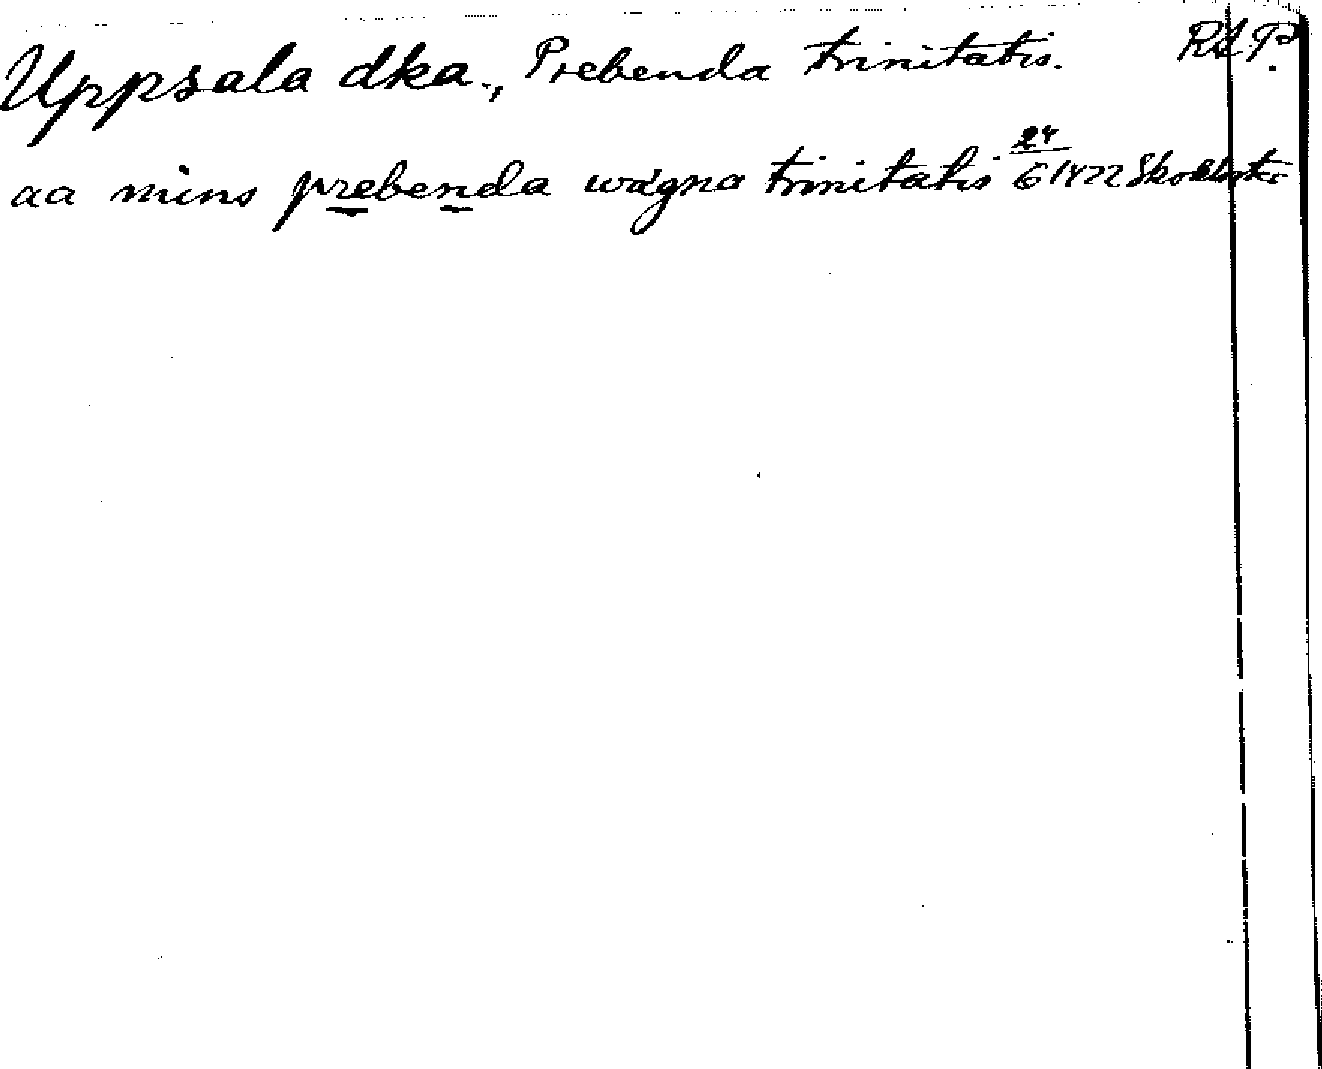 Uppsala dka., Prebenda trinitatis. RAP.
aa mins prebenda wägna trinitatis 24/6 1422 Skokloster